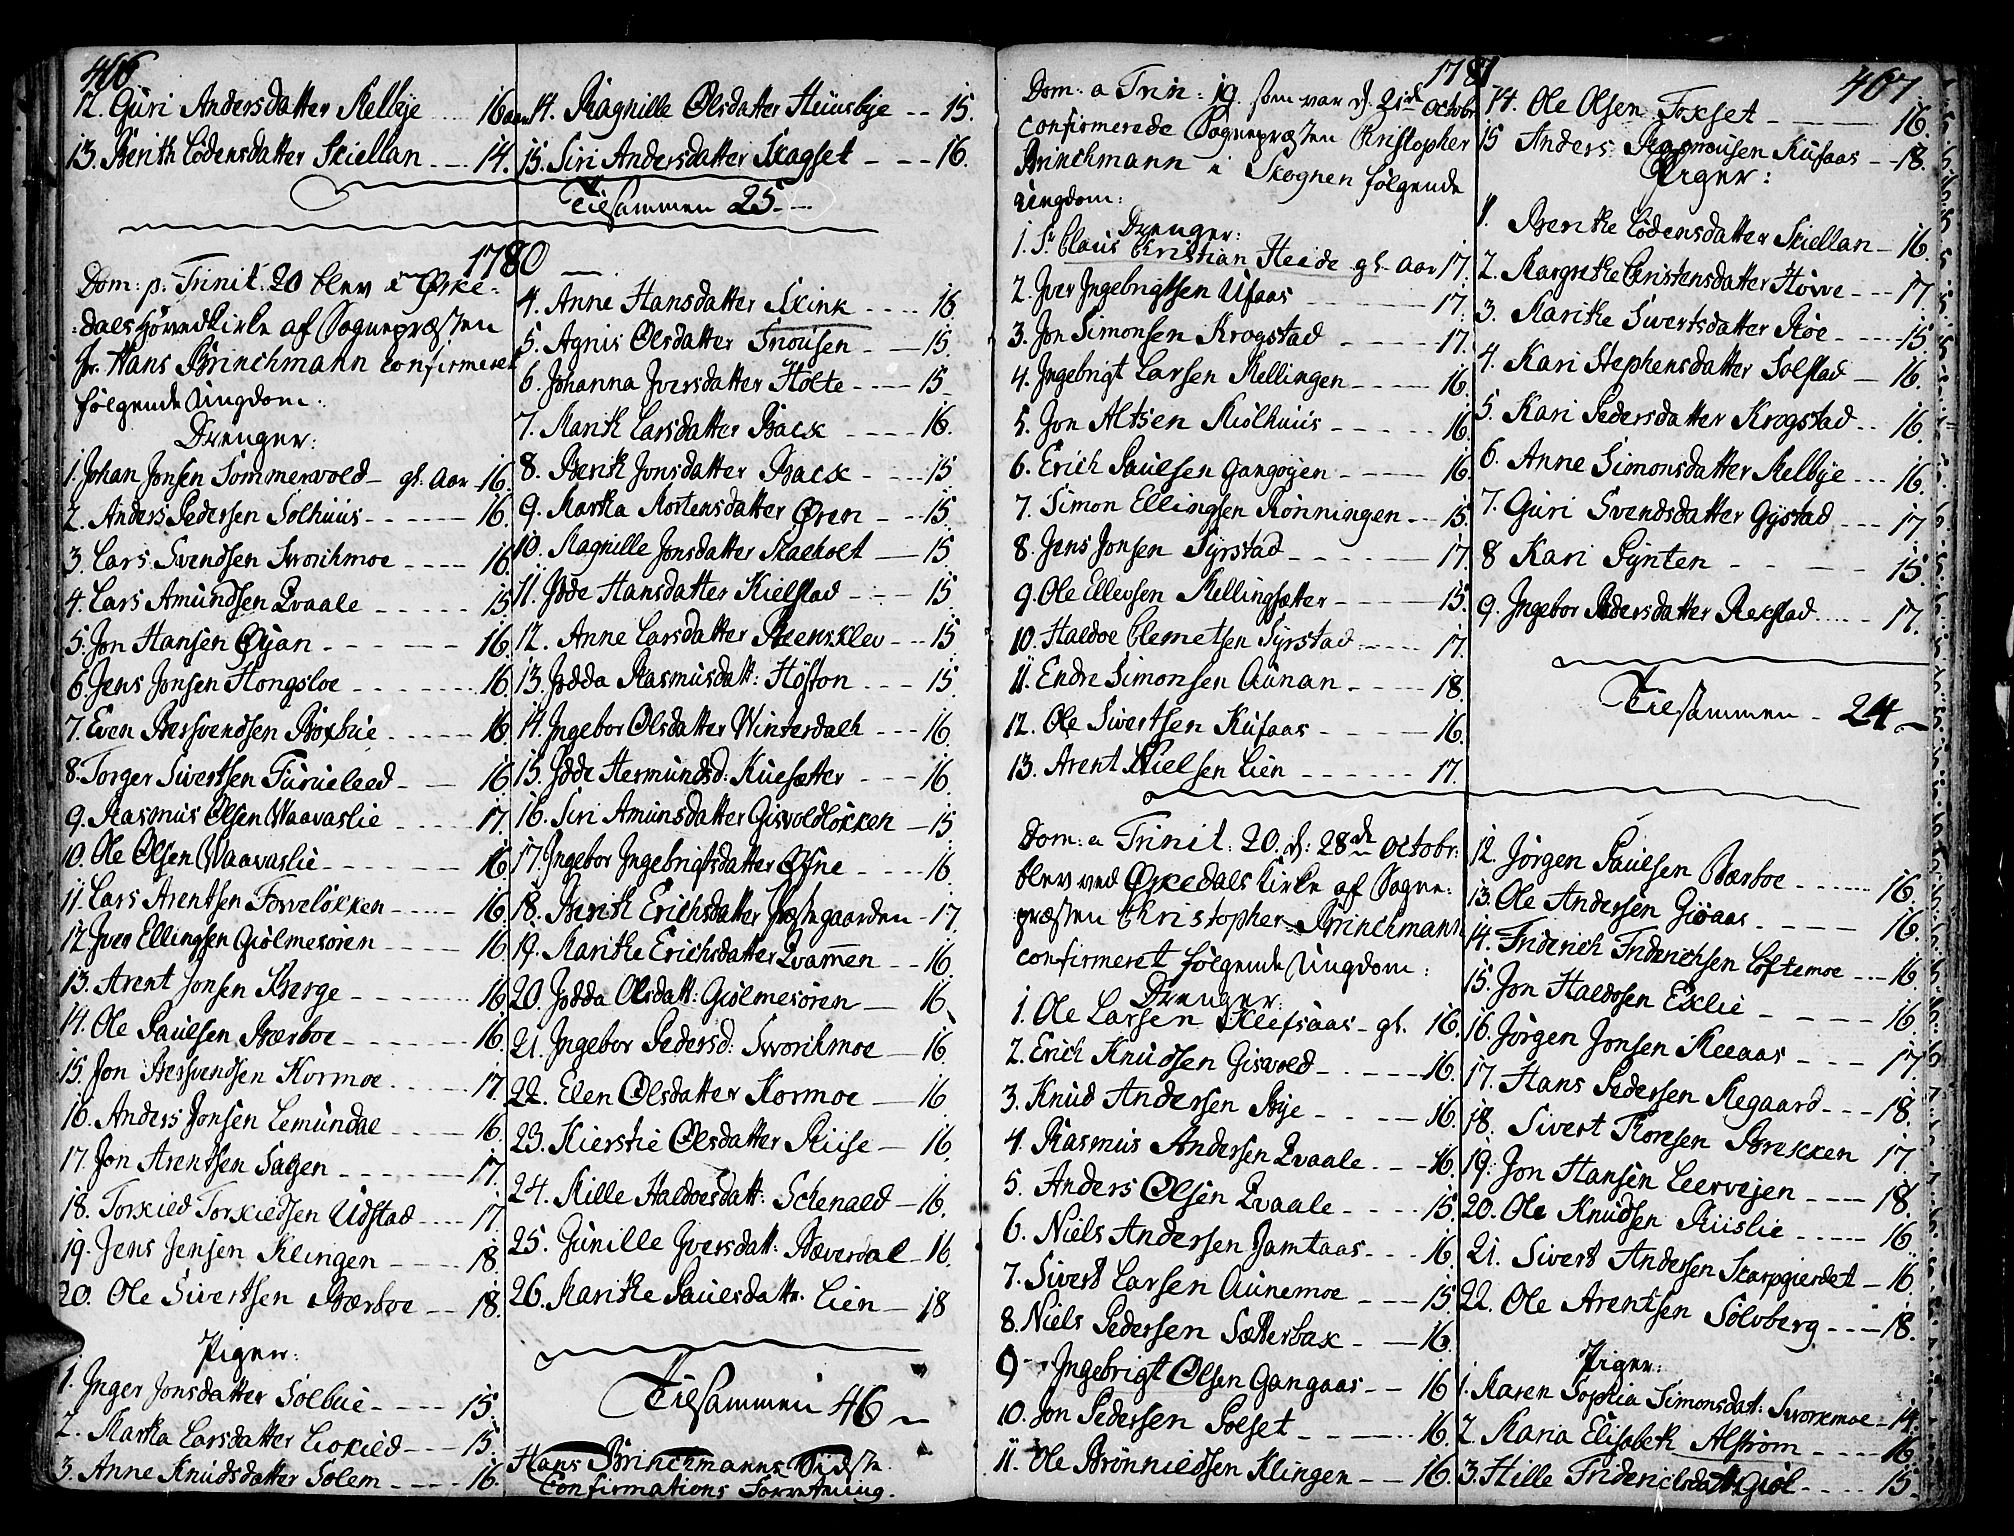 406
12. Guri Andersdatter Melbye .... 16 aar
13. Berith Lodensdatter Skiellan --- 14.
14. Ragnille Olsdatter Huusbye -- 15.
15. Siri Andersdatter Skagset --- 16.
Tilsammen 25.
1780
Dom: p: Trinit: 20 blev i Ørke-
dals Hovedkirke af Sognepræsten
Hr. Hans Brinchmann confirmeret
følgende Ungdom:
Drenger:
1. Johan Jonsen Sommervold - gl. Aar 16.
2. Anders Pedersen Solhuus ------ 16.
3. Lars Svendsen Svorchmoe ---- 16
4. Lars Amundsen Qvaale ----- 15
5. Jon Hansen Øyan ------ 16.
6. Jens Jonsen Hongsloe ------- 16
7. Even Bersvendsen Boxbue ----- 16
8. Torger Sivertsen Furueleed --- 16
9. Rasmus Olsen Waavaslie ------ 17.
10. Ole Olsen Waavaslie ------- 16
11. Lars Arentsen Forveløkken ----- 16
12. Iver Ellingsen Giølmesøren ---- 16
13. Arent Jonsen Berge ------- 16
14. Ole Paulsen Bærboe ------- 16.
15. Jon Bersvendsen Kormoe ---- 17.
16. Anders Jonsen Lemundal ---- 16.
17. Jon Arentsen Sagen ------- 17.
18. Torkied Torkiedsen Udstad ---- 17.
19. Jens Jensen Klingen ---- 18.
20. Ole Sivertsen Bærboe -- 18.
Piger:
1. Inger Jonsdatter Solbue ---- 15.
2. Marha Larsdatter Liokied --- 15.
3. Anne Knudsdatter Solem ---- 16.
4. Anne Hansdatter Skink .... 16.
5. Agnis Olsdatter Snousen --- 15.
6. Johanna Iversdatter Holte ---- 15
7. Marith Larsdatter Back ---- 16.
8. Berith Jonsdatter Back ----- 15
9. Martha Mortensdatter Øren --- 15.
10. Magnille Jonsdatter Skaeholt -- 15.
11. Jode Hansdatter Kielstad ---- 15.
12. Anne Larsdatter Reensklev --- 15
13. Jodda Rasmusdatt: Høston --- 15
14. Ingebor Olsdatter Winterdahl --- 16.
15. Jode Hermundsd: Kuesætter --- 16
16. Siri Amunsdatter Gisvoldløkken - 15
17. Ingebor Ingebrigtsdatter Ofne ---- 16
18. Berith Erichsdatter Præstegaarden - 17
19. Marithe Erichsdatter Qvammen -- 16
20. Jodda Olsdatt: Giølmesøren -- 16.
21. Ingebor Pedersd: Svorchmoe -- 16
22. Elen Olsdatter Kormoe -- 16
23. Kierstie Olsdatter Riise - 16
24. Mille Haldoesdatt: Schenald - 16.
25. Gunille Iversdatt: Bæverdal - 16
26. Marithe Paulsdattr. Lien -- 18
Tilsammen 46
Hans Brinchmanns Sidste
Confirmations Forretning.
1781
407
Dom: a Trin: 19. som var d. 21de Octobr
confirmerede Sognepræsten Christopher
Brinchmann i Skognen følgende
Ungdom:
Drenger:
1. Sr. Claus Christian Heide gl. Aar 17.
2. Iver Ingebrigtsen Ufaas ------ 17.
3. Jon Simonsen Krogstad ----- 17.
4. Ingebrigt Larsen Mellingen ----- 16.
5. Jon Altsen Kiølhuus ----- 16
6. Erich Paulsen Gangøyen ---- 16
7. Simon Ellingsen Rønningen -- 15.
8. Jens Jonsen Syrstad ------ 17.
9. Ole Ellevsen Mellingsætter ---- 15.
10. Haldoe Clemetsen Syrstad ----- 17.
11. Endre Simonsen Aunan ---- 18.
12. Ole Sivertsen Kufaas ----- 16.
13. Arent Nielsen Lien ------ 17.
14. Ole Olsen Foxset ------ 16.
15 Anders Rasmusen Kufaas -- 18.
Piger:
1. Berithe Lodensdatter Skiellan - 16.
2. Margrethe Christensdatter Howe --- 17
3. Marithe Sivertsdatter Roe ----- 15.
4. Kari Stephensdatter Solstad -- 16.
5. Kari Pedersdatter Krogstad -- 16
6. Anne Simonsdatter Melbye --- 16.
7. Guri Svendsdatter Gystad --- 17
8 Kari Pynten ------ 15.
9. Ingebor Pedersdatter Rekstad ----- 17.
Tilsammen - 24.
Dom: a Trinit: 20. d: 28de Octobr:
blev ved Ørkedals Kirke af Sogne-
præsten Christopher Brinchmann
confirmeret følgende Ungdom:
Drenger:
1. Ole Larsen Kleefsaas - gl. 16.
2. Erich Knudsen Gisvold ------ 16.
3. Knud Andersen Bye ----- 16.
4. Rasmus Andersen Qvaale --- 16.
5. Anders Olsen Qvaale ---- 15.
6. Niels Andersen Jamtaas --- 16.
7. Sivert Larsen Aunemoe --- 15.
8. Niels Pedersen Sætterbak --- 16.
9. Ingebrigt Olsen Gangaas -- 16
10. Jon Pedersen Solset ------ 16.
11. Ole Brønnieldsen Klingen -- 16.
12. Jørgen Paulsen Bærboe ------ 16.
13. Ole Andersen Gioaas ------ 16.
14. Friderich Friderichsen Loftemoe --- 16
15. Jon Haldosen Eklie ----- 16.
16. Jørgen Jonsen Meeaas ---- 17
17. Hans Pedersen Megaard --- 18.
18. Sivert Roresen Brekken 17.
19. Jon Hansen Leervejen ---- 18.
20. Ole Knudsen Riislie ----- 16
21. Sivert Andersen Skarpgierdet - 16
22. Ole Arentsen Solvberg ---- 18.
Piger:
1. Karen Sophia Simonsdat: Svorkmoe - 14.
2. Maria Elisabeth Alstrøm ---- 16
3. Hille Friderichsdatt: Giøl ---- 15.